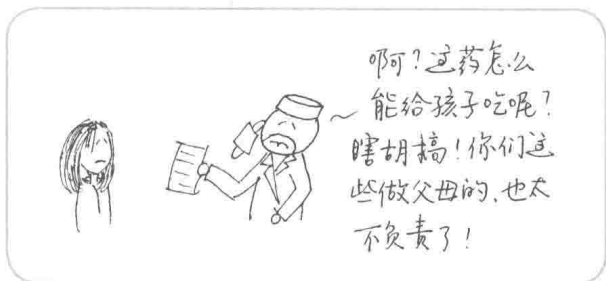 啊?这药怎么
能给孩子吃呢?
瞎胡搞!你们这
些做父母的、也太
不负责了!